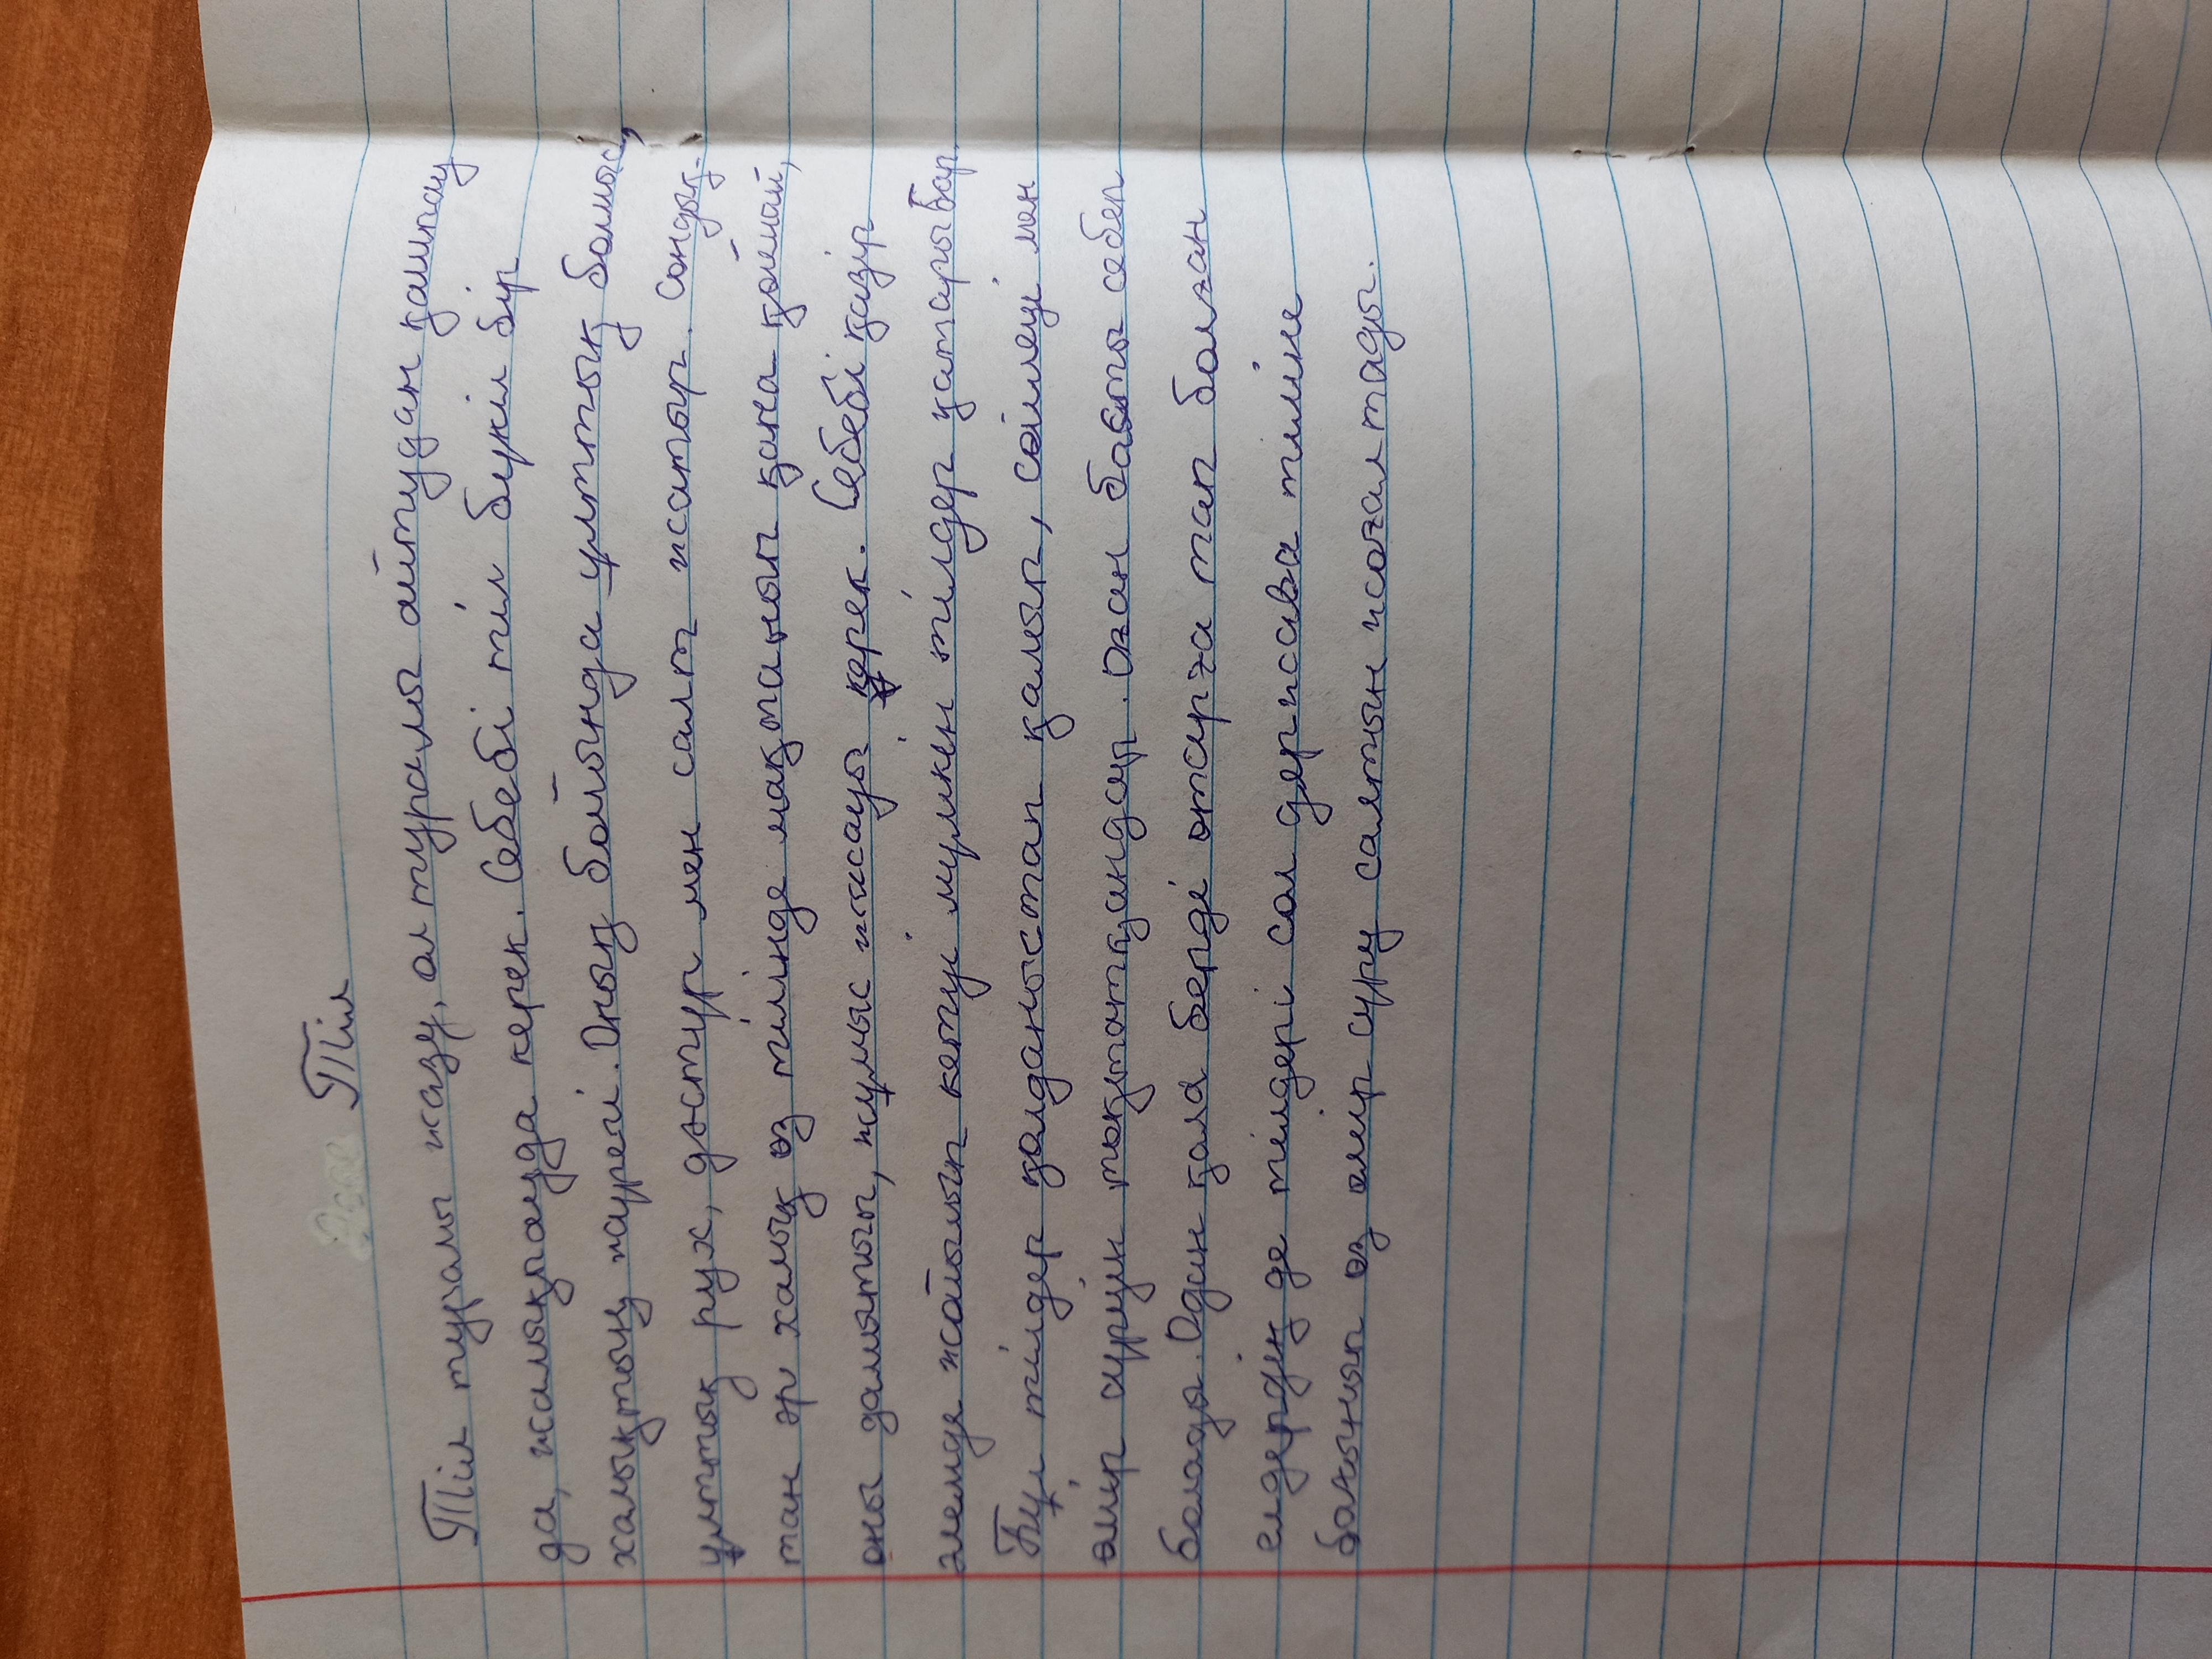 Тіл
Тіл туралы жазу, ол туралы айтудан қалыпау
да, жалықпауда керек. Себебі тіл бүкіл бір
халықтың жүрегі. Оның бойында ұлттық болмыс,
ұлттық рух, дәстүр мен салт жатыр. Сондық-
тан әр халық өз тілінде мақтанып қана қоймай,
оны дамытып, жұмыс жасауы керек. Себебі қазір
әлемде жойылып кетуі мүмкін тілдер қатары бар.
Бұл тілдер қолданыстан қалып, сөйлеуі мен
өмір сүруін тоқтатқандар. Оған басты себеп
болады. Одан қала берді отарға тап болған
елдердің де тілдері сол держава тіліне
бағынып өз өмір сүру салтын жоғалтады.